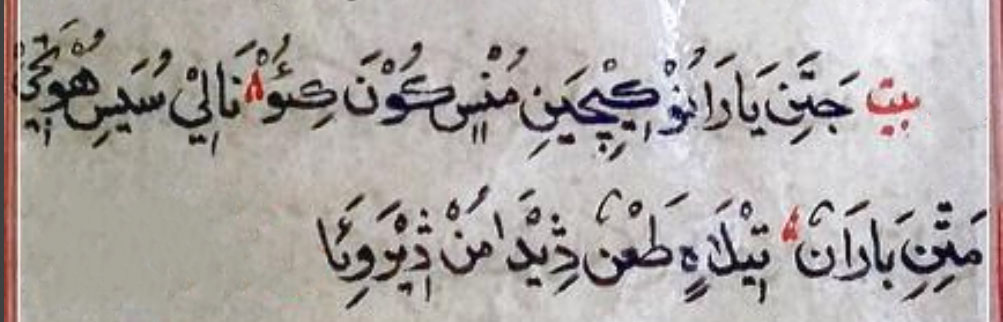 بيت جَتَنِ يَارَانُوْ کِيْچِيَينِ مُنْسِ کُوْنَ کِئَوْ نَالِيْ سُيَسِ هُوْتَجِيْ
مَتِّنِ بَارَانْ تِيْلَاهِ طَعْنَ ڎِيْدَا مَنْ ڎِيْرَوِيَا